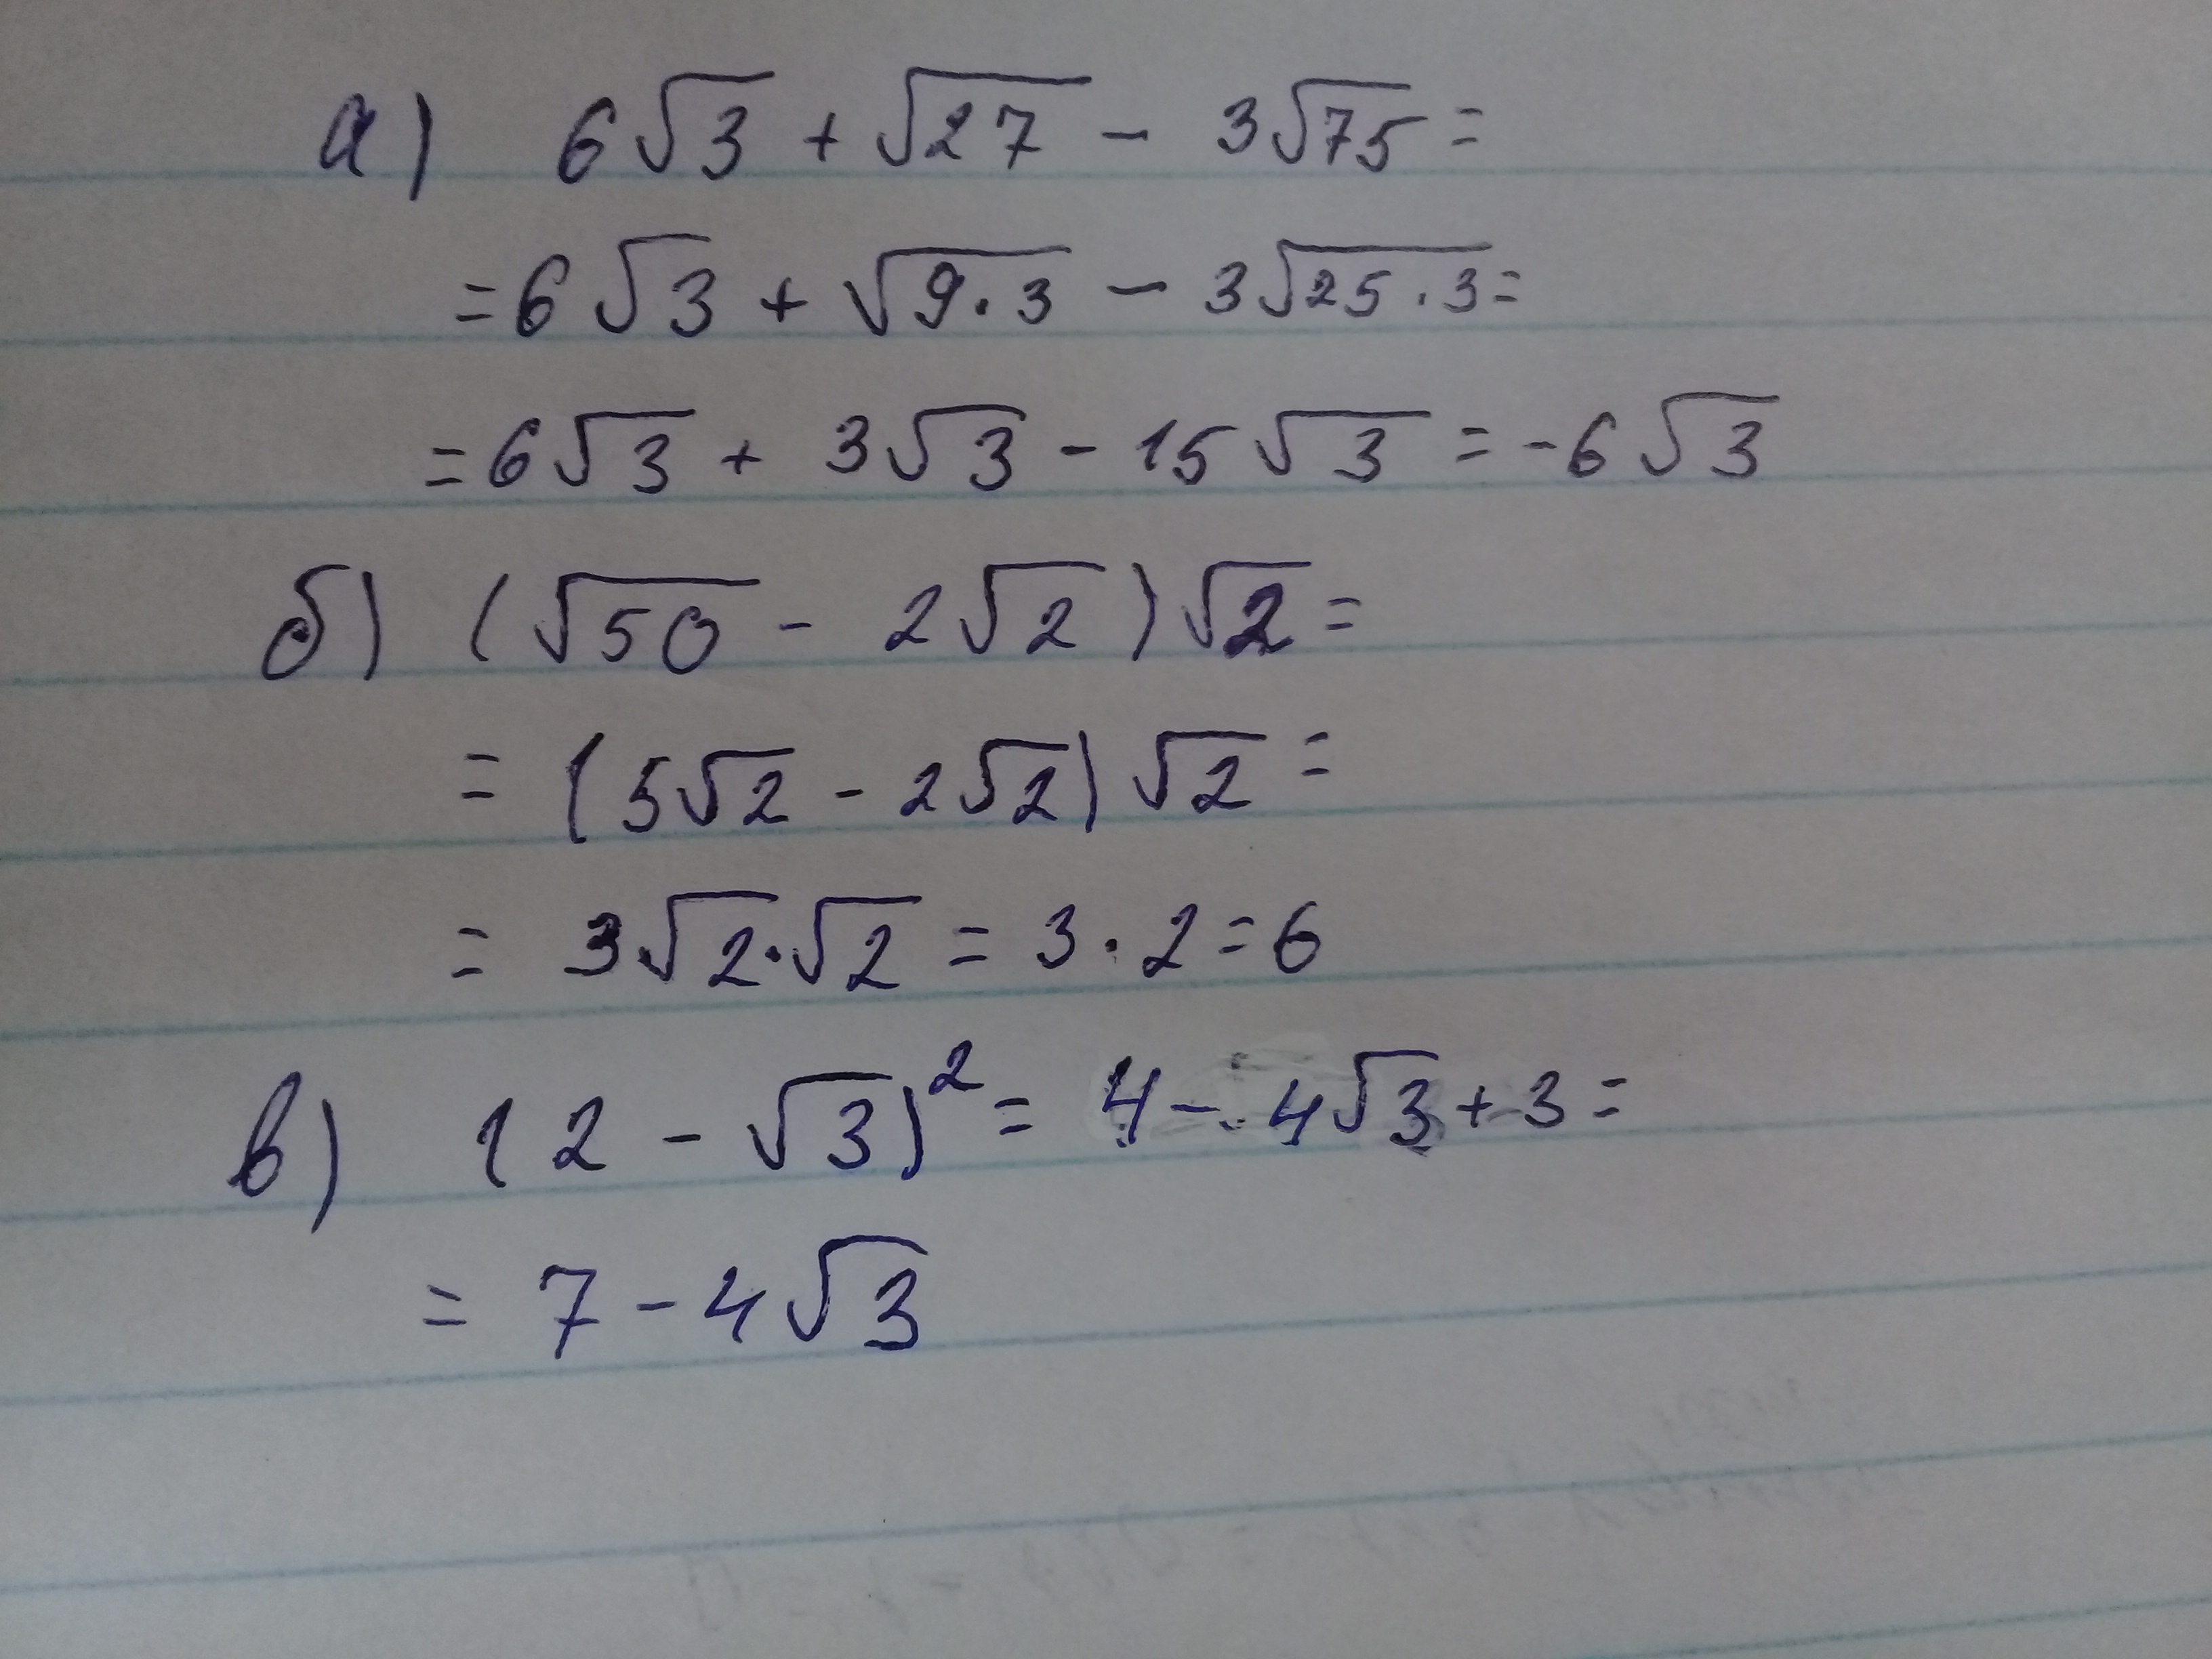 а) 6√3 + √27 - 3√75 =
= 6√3 + √9·3 - 3√25·3 =
= 6√3 + 3√3 - 15√3 = -6√3
б) (√50 - 2√2)√2 =
= (5√2 - 2√2)√2 =
= 3√2·√2 = 3·2 = 6
в) (2 - √3)² = 4 - 4√3 + 3 =
= 7 - 4√3